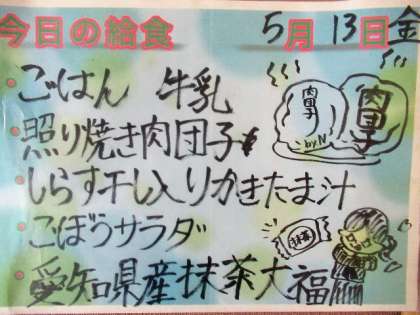 今日の給食 5月13日金
・ごはん 牛乳
・照り焼き肉団子
・しらす干し入りかきたま汁
・ごぼうサラダ
・愛知県産抹茶大福
肉団子
by N
肉団子
抹茶